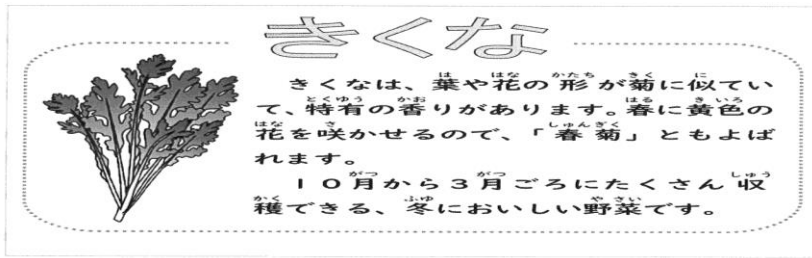 きくな
きくなは、葉や花の形が菊に似てい
て、特有の香りがあります。春に黄色の
花を咲かせるので、「春菊」ともよば
れます。
１０月から３月ごろにたくさん収
穫できる、冬においしい野菜です。